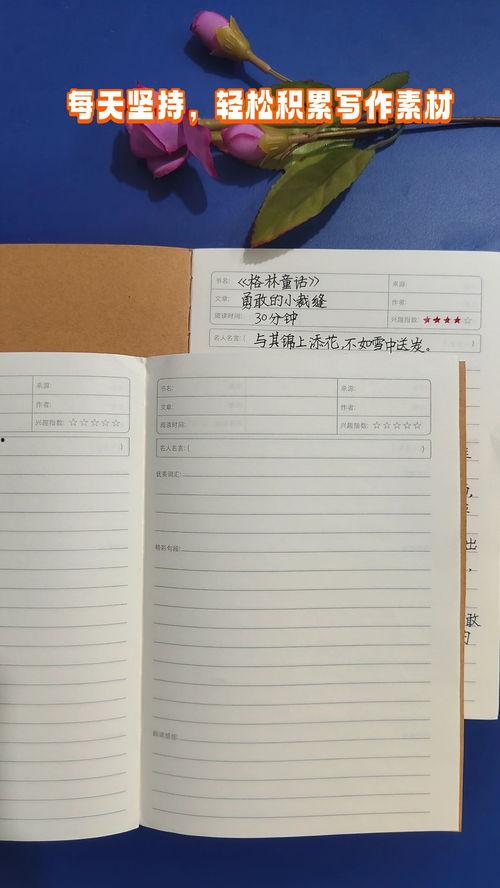 每天坚持，轻松积累写作素材
书名: 《格林童话》 来源:
文章: 勇敢的小裁缝 作者:
阅读时间: 30分钟 兴趣指数: ★★★★☆
名人名言:( 与其锦上添花,不如雪中送炭。
出
敢
来源:
作者:
兴趣指数: ☆☆☆☆☆
)
书名: 来源:
文章: 作者:
阅读时间: 兴趣指数: ☆☆☆☆☆
名人名言:( )
优美词汇:
精彩句段:
阅读感悟: